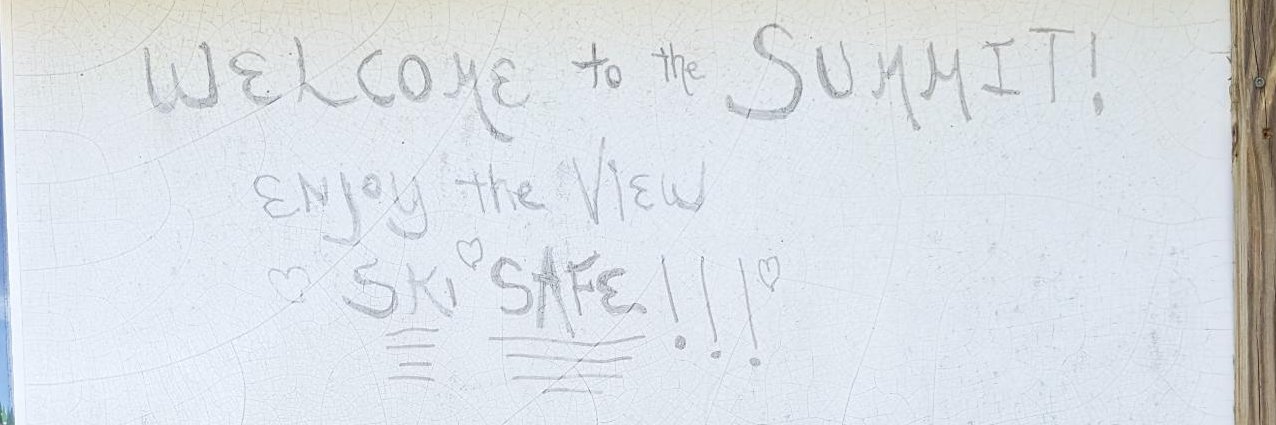 WELCOME to the SUMMIT!
ENJOY the VIEW
♡ SKI ♡ SAFE!!! ♡